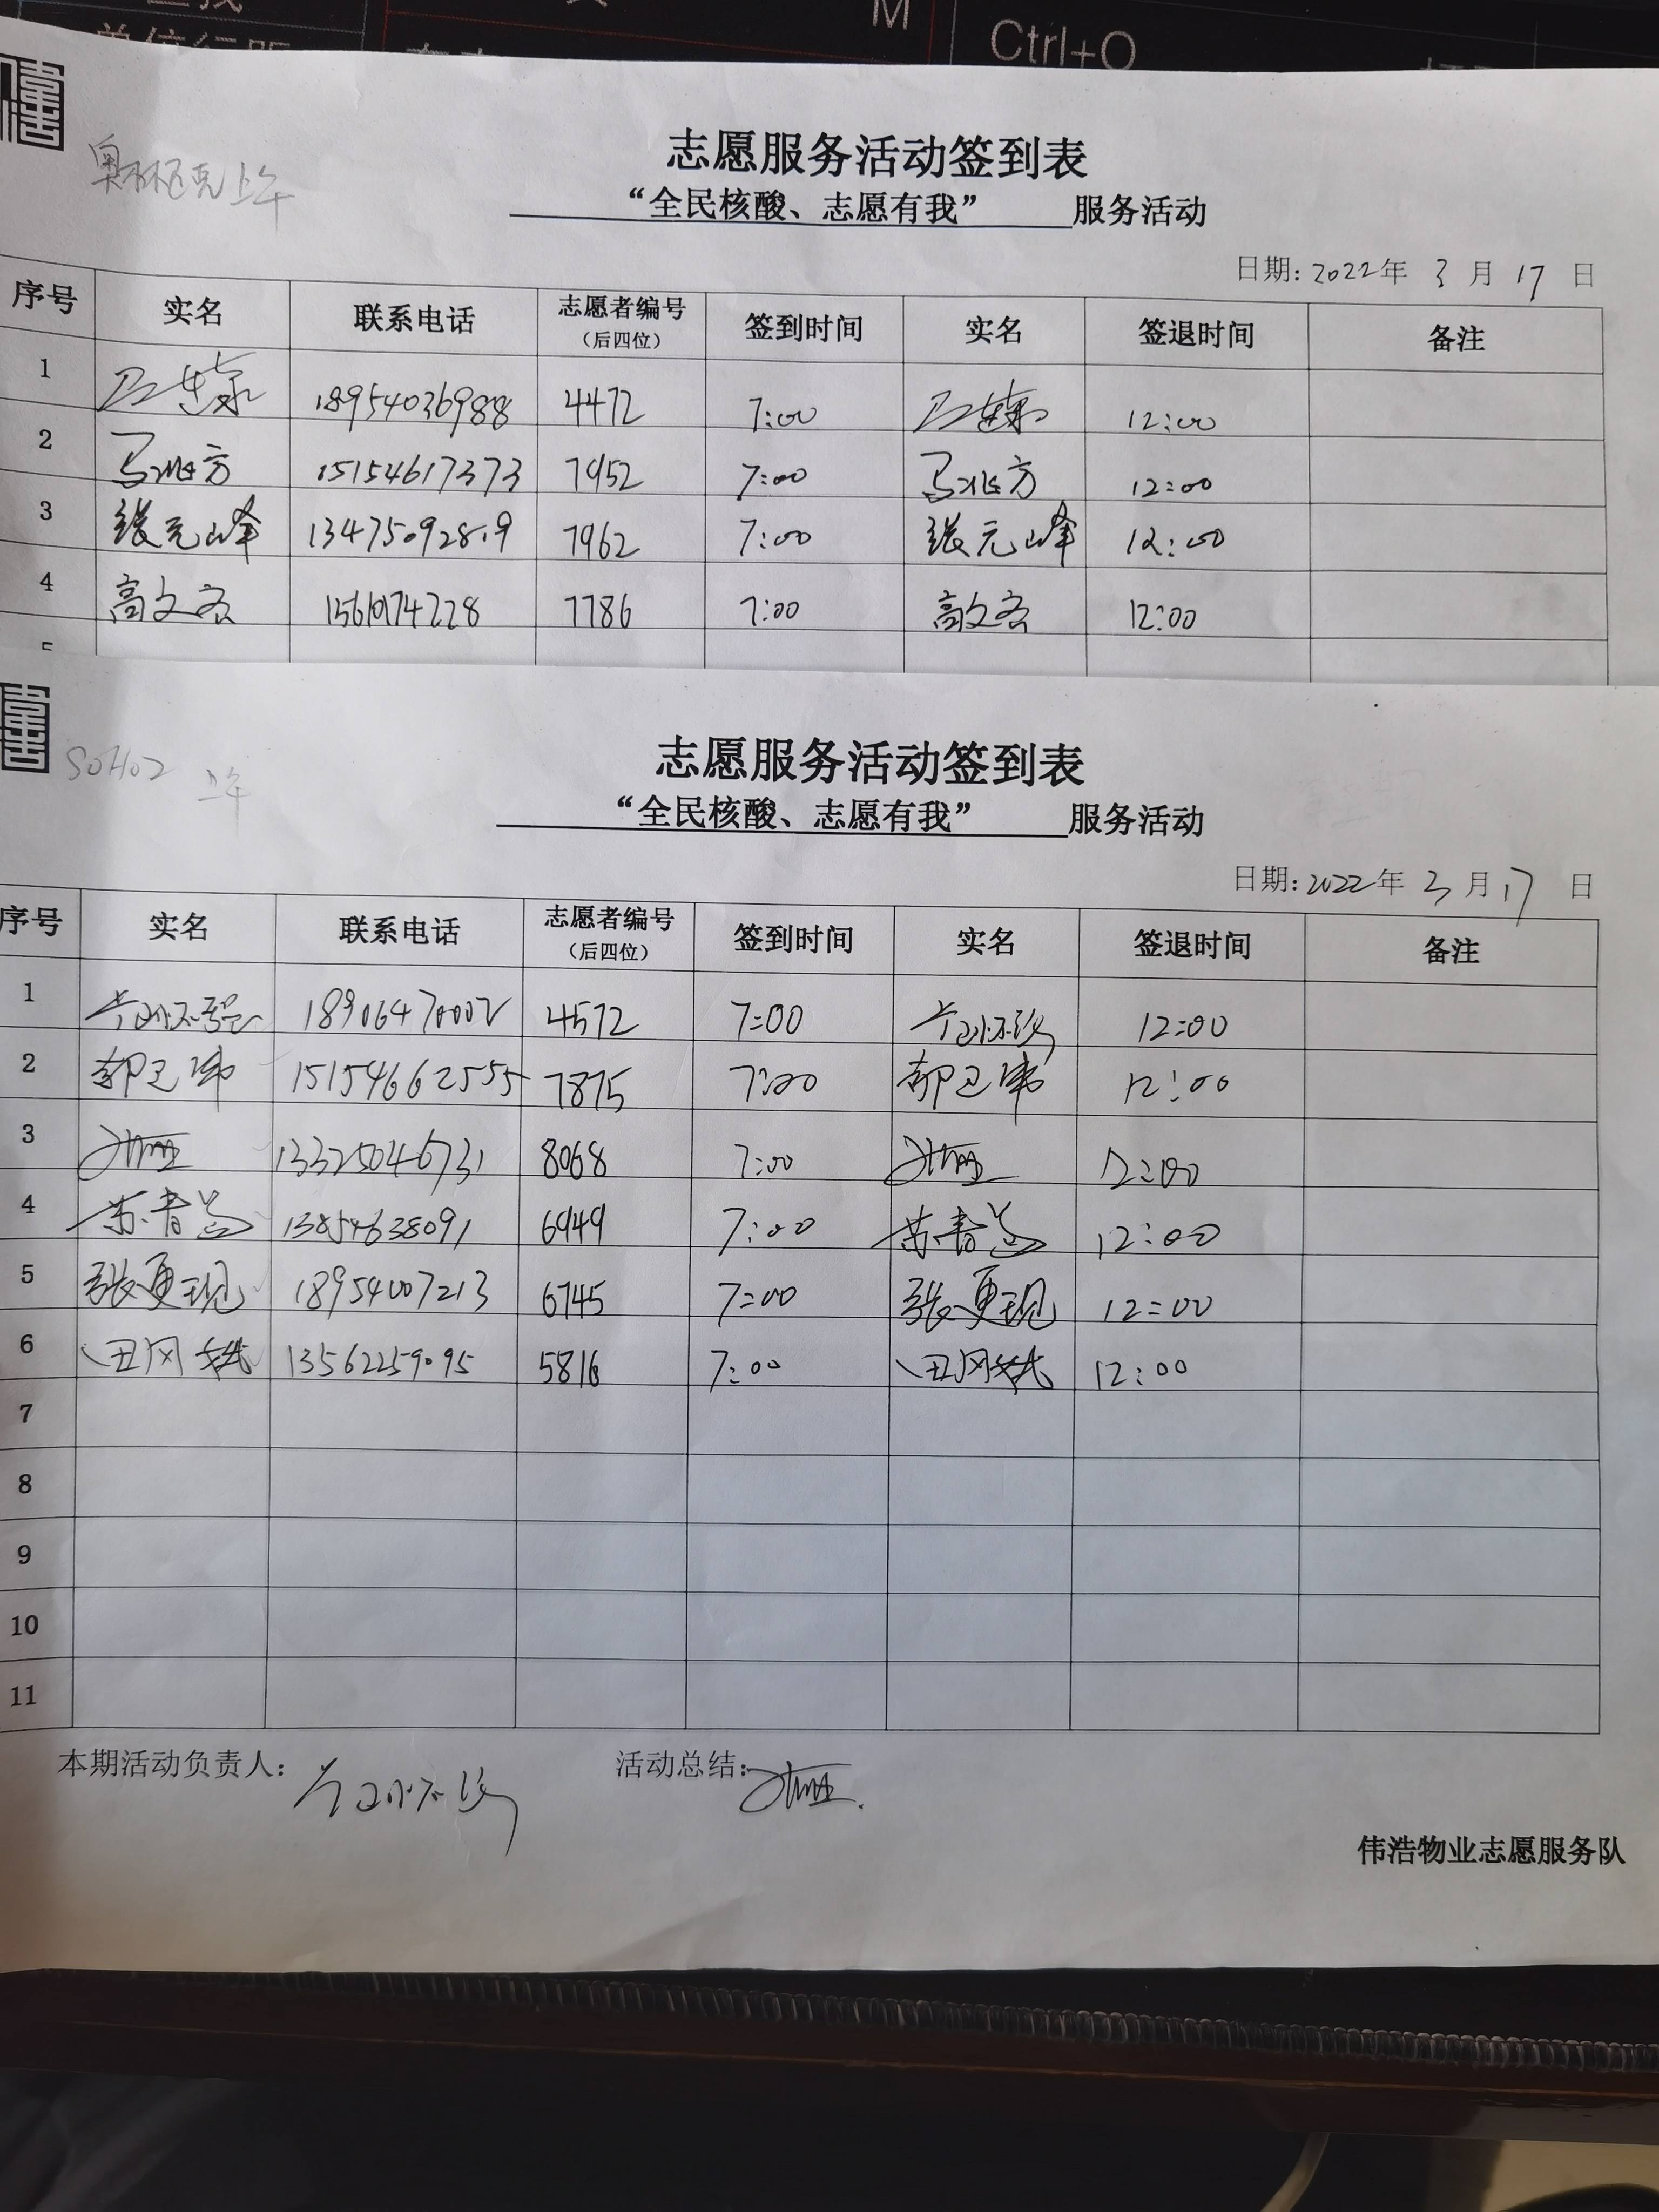 Ctrl+O
M
奥林匹克上午
志愿服务活动签到表
“全民核酸、志愿有我” 服务活动
日期: 2022年 3 月 17 日
序号 实名 联系电话 志愿者编号（后四位） 签到时间 实名 签退时间 备注
1 18954036988 4472 7:00 12:00
2 马兆方 15154617373 7952 7:00 马兆方 12:00
3 张元峰 13475092819 7962 7:00 张元峰 12:00
4 7786 7:00 12:00
志愿服务活动签到表
SOHO2 上午
“全民核酸、志愿有我” 服务活动
日期: 2022年 3 月 17 日
序号 实名 联系电话 志愿者编号（后四位） 签到时间 实名 签退时间 备注
1 18906470002 4572 7:00 12:00
2 郭卫华 15154662555 7875 7:00 郭卫华 12:00
3 13325046731 8068 7:00 12:00
4 13854638091 6949 7:00 12:00
5 张更现 18954007213 6745 7:00 张更现 12:00
6 13562259095 5816 7:00 12:00
7
8
9
10
11
本期活动负责人: 活动总结:
伟浩物业志愿服务队